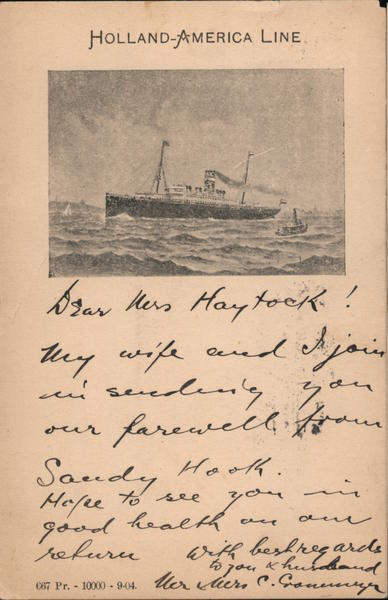 HOLLAND-AMERICA LINE
Dear Mrs Haytock!
My wife and I join
in sending you
our farewell from
Sandy Hook.
Hope to see you in
good health on our
return with best regards
to you & husband
Mr Mrs C.
667 Pr. - 10000 - 9-04.